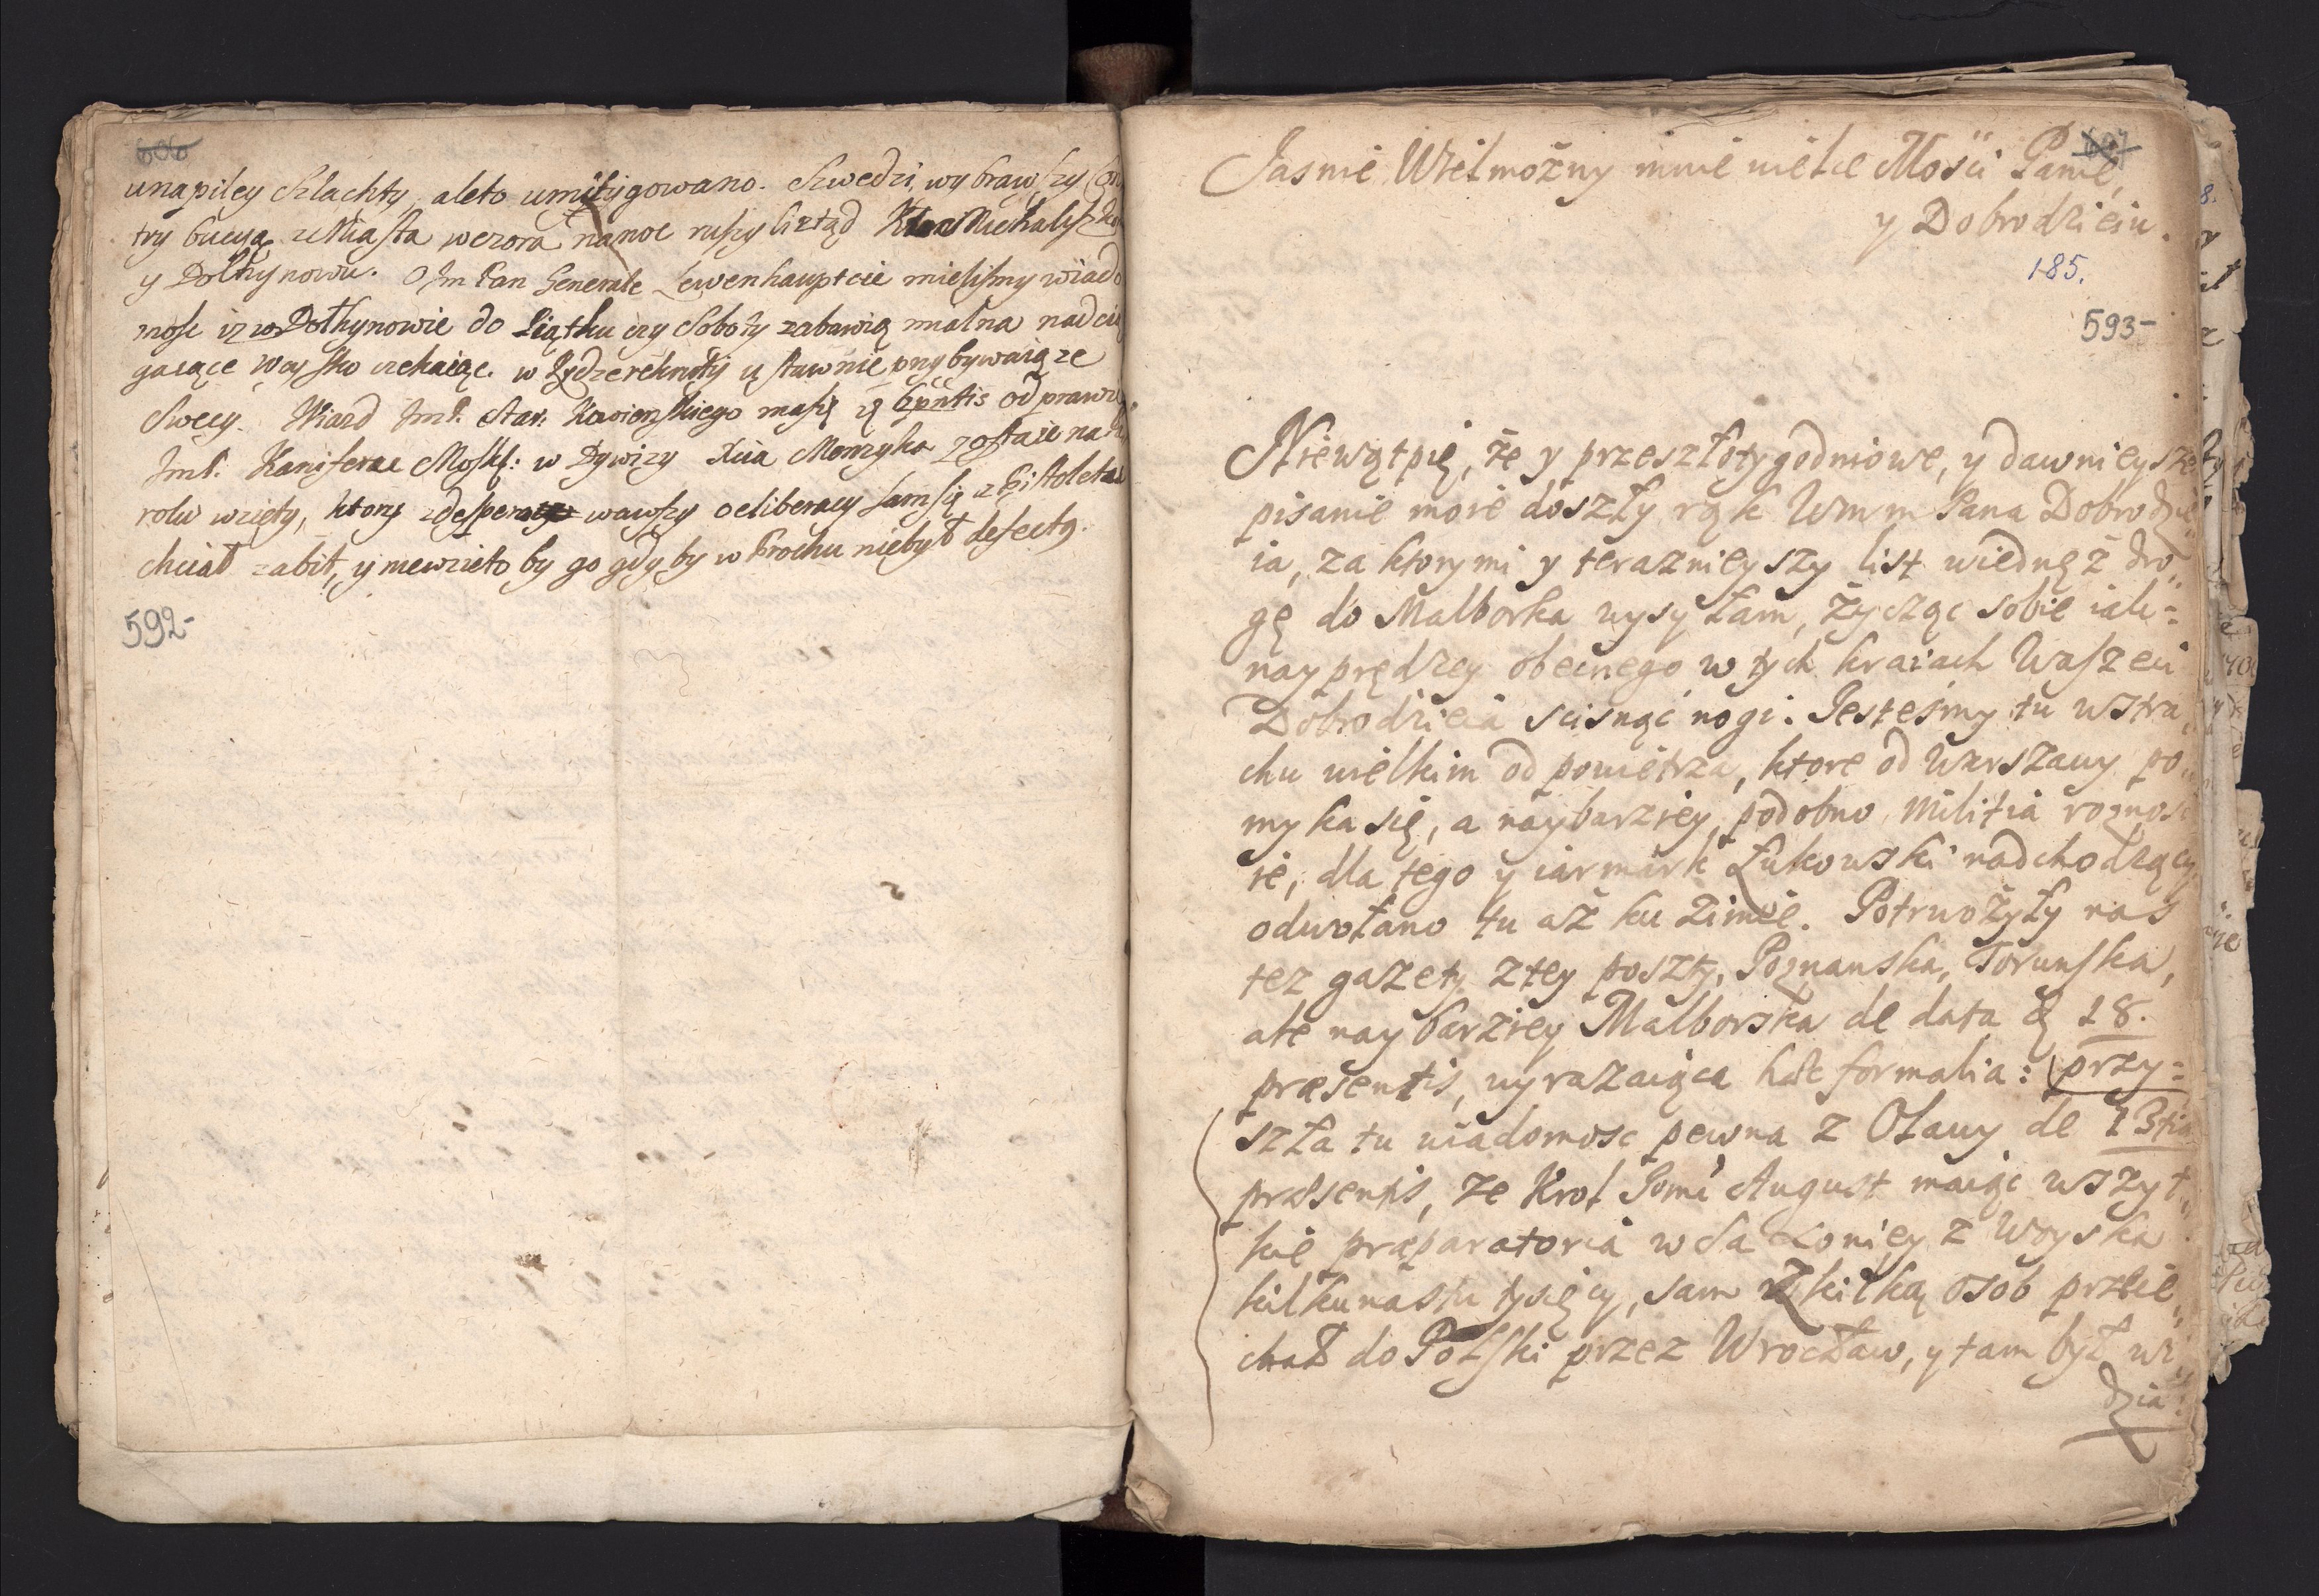 606
unapiley Szlachty, aleto umitygowano. Szwedzi, wybrawszy Con
trybucyą zMiasta wczora nanoc ruszyli ztąd Michalyszkom
y Dolhynowu. O Jm Pan Generale Lewenhaupcie mielismy wiado
mosc iz w Dolhynowie do Piątku czy Soboty zabawią malna nadcią
gaiące woysko czekaiąc. w ustawnie przybywaią ze
Swecy. Wiazd JmP. Star. Kowienskiego ma się 6 pntis odprawic
JmP. Kanifera Mosk: w Dywizy Xcia Menzyka zostaie na
rolu wzięty, ktory zdesperowawszy o eliberacy sam się z Pistoletu
chciał zabit, y niewzieto by go gdyby w Prochu niebył defectg.
592-
607
Jasnie Wielmożny mnie wielce Mości Panie,
y Dobrodzieiu.
185.
593-
Niewątpię, że y przeszłotygodniowe, y dawnieysze
pisanie moie doszły rąk Wmm Pana Dobrodzie
ia, za ktorymi y teraznieyszy list wiednęż dro
gę do Malborka wysyłam, życząc sobie iak=
nayprędzey obecnego w tych kraiach Waszeci
Dobrodzieia scisnąć nogi. Jestesmy tu wstra
chu wielkim od powietrza, ktore od Warszawy po
myka się, a naybarziey podobno Militia roznosi
ie, dla tego y iarmark Łukowski nadchodzący
odwołano tu aż ku Zimie. Potrwożyły nas
tez gazety ztey poszty, Poznanska, Torunska,
ale naybarziey Malborska de data 18.
præsentis, wyrazaiąca hæc formalia: przy=
szła tu wiadomosc pewna z Oławy de 13tia
præsentis, ze Krol Jomć August maiąc wszyt
kie præparatoria w Saxoniey z Woyska
kilkunastu tysięcy, sam z kilką osob przeie
chał do Polski przez Wrocław, y tam był wi
dzia